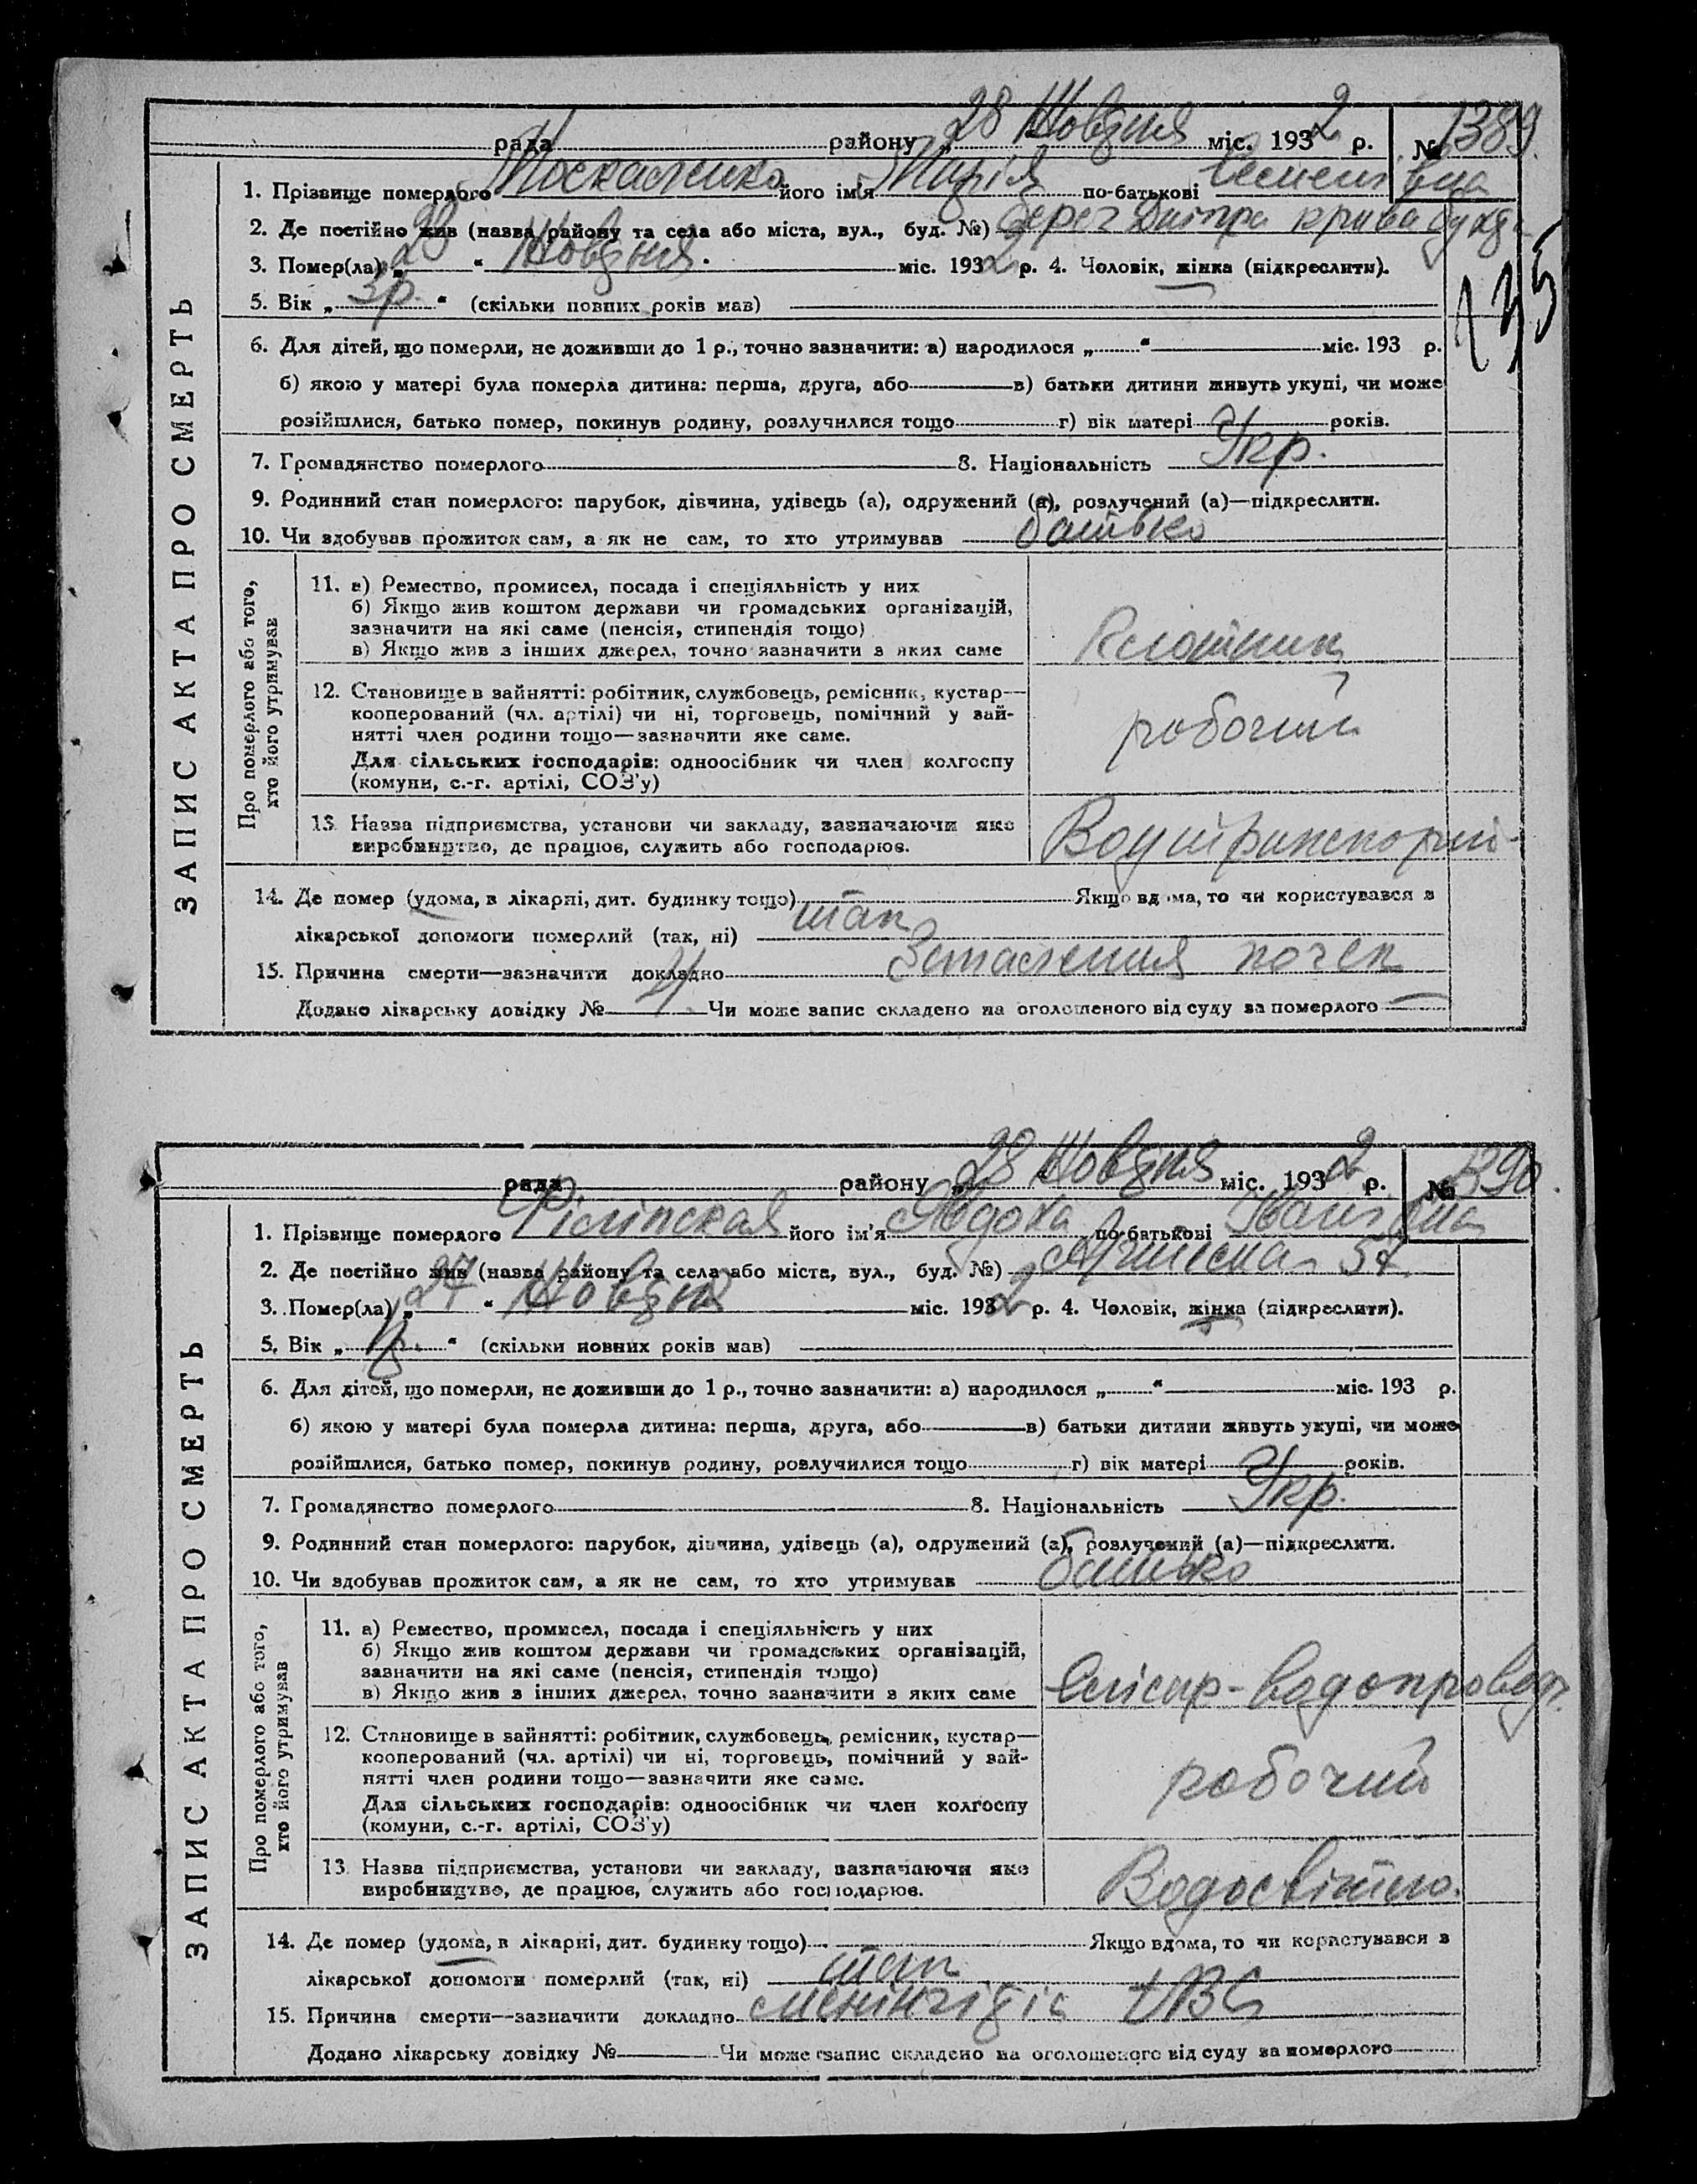 рада района „28 Жовтня міс. 1932 р. № 1389.
1. Прізвище померлого Москаленко його ім'я Марія по-батькові Семенівна
2. Де постійно жив (назва району та села або міста, вул., буд. №) берег Дніпра крива
3. Помер(ла) „28“ Жовтня. міс. 1932 р. 4. Чоловік, жінка (підкреслити).
5. Вік „3р.“ (скільки повних років мав)
135
6. Для дітей, що померли, не доживши до 1 р., точно зазначити: а) народилося „ “ міс. 193 р.
б) якою у матері була померла дитина: перша, друга, або в) батьки дитини живуть укупі, чи може
розійшлися, батько помер, покинув родину, розлучилися тощо г) вік матері років.
7. Громадянство померлого 8. Національність Укр.
9. Родинний стан померлого: парубок, дівчина, удівець (а), одружений (а), розлучений (а)—підкреслити.
10. Чи здобував прожиток сам, а як не сам, то хто утримував батько
ЗАПИС АКТА ПРО СМЕРТЬ
Про померлого або того,
хто його утримував
11. а) Ремество, промисел, посада і спеціяльність у них
б) Якщо жив коштом держави чи громадських організацій,
зазначити на які саме (пенсія, стипендія тощо)
в) Якщо жив з інших джерел, точно зазначити з яких саме
12. Становище в зайнятті: робітник, службовець, ремісник, кустар—
кооперований (чл. артілі) чи ні, торговець, помічний у зай-
нятті член родини тощо—зазначити яке саме.
робочий
Для сільських господарів: одноосібник чи член колгоспу
(комуни, с.-г. артілі, СОЗ'у)
13. Назва підприємства, установи чи закладу, зазначаючи яке
виробництво, де працює, служить або господарює.
14. Де помер (удома, в лікарні, дит. будинку тощо) Якщо вдома, то чи користувався з
лікарської допомоги померлий (так, ні) так
15. Причина смерти—зазначити докладно почек
Додано лікарську довідку № Чи може запис складено на оголошеного від суду за померлого
рада району „28 Жовтня міс. 1932 р. № 1390.
1. Прізвище померлого його ім'я Явдоха по-батькові Іванівна
2. Де постійно жив (назва району та села або міста, вул., буд. №) 57
3. Помер(ла) „27“ Жовтня міс. 1932 р. 4. Чоловік, жінка (підкреслити).
5. Вік „ “ (скільки повних років мав)
6. Для дітей, що померли, не доживши до 1 р., точно зазначити: а) народилося „ “ міс. 193 р.
б) якою у матері була померла дитина: перша, друга, або в) батьки дитини живуть укупі, чи може
розійшлися, батько помер, покинув родину, розлучилися тощо г) вік матері років.
7. Громадянство померлого 8. Національність Укр.
9. Родинний стан померлого: парубок, дівчина, удівець (а), одружений (а), розлучений (а)—підкреслити.
10. Чи здобував прожиток сам, а як не сам, то хто утримував батько
ЗАПИС АКТА ПРО СМЕРТЬ
Про померлого або того,
хто його утримував
11. а) Ремество, промисел, посада і спеціяльність у них
б) Якщо жив коштом держави чи громадських організацій,
зазначити на які саме (пенсія, стипендія тощо)
в) Якщо жив з інших джерел, точно зазначити з яких саме
Слісар-водопровод.
12. Становище в зайнятті: робітник, службовець, ремісник, кустар—
кооперований (чл. артілі) чи ні, торговець, помічний у зай-
нятті член родини тощо—зазначити яке саме.
робочий
Для сільських господарів: одноосібник чи член колгоспу
(комуни, с.-г. артілі, СОЗ'у)
13. Назва підприємства, установи чи закладу, зазначаючи яке
виробництво, де працює, служить або господарює.
Водосвітло.
14. Де помер (удома, в лікарні, дит. будинку тощо) Якщо вдома, то чи користувався з
лікарської допомоги померлий (так, ні) так
15. Причина смерти—зазначити докладно менінгітіс tBC
Додано лікарську довідку № Чи може запис складено на оголошеного від суду за померлого